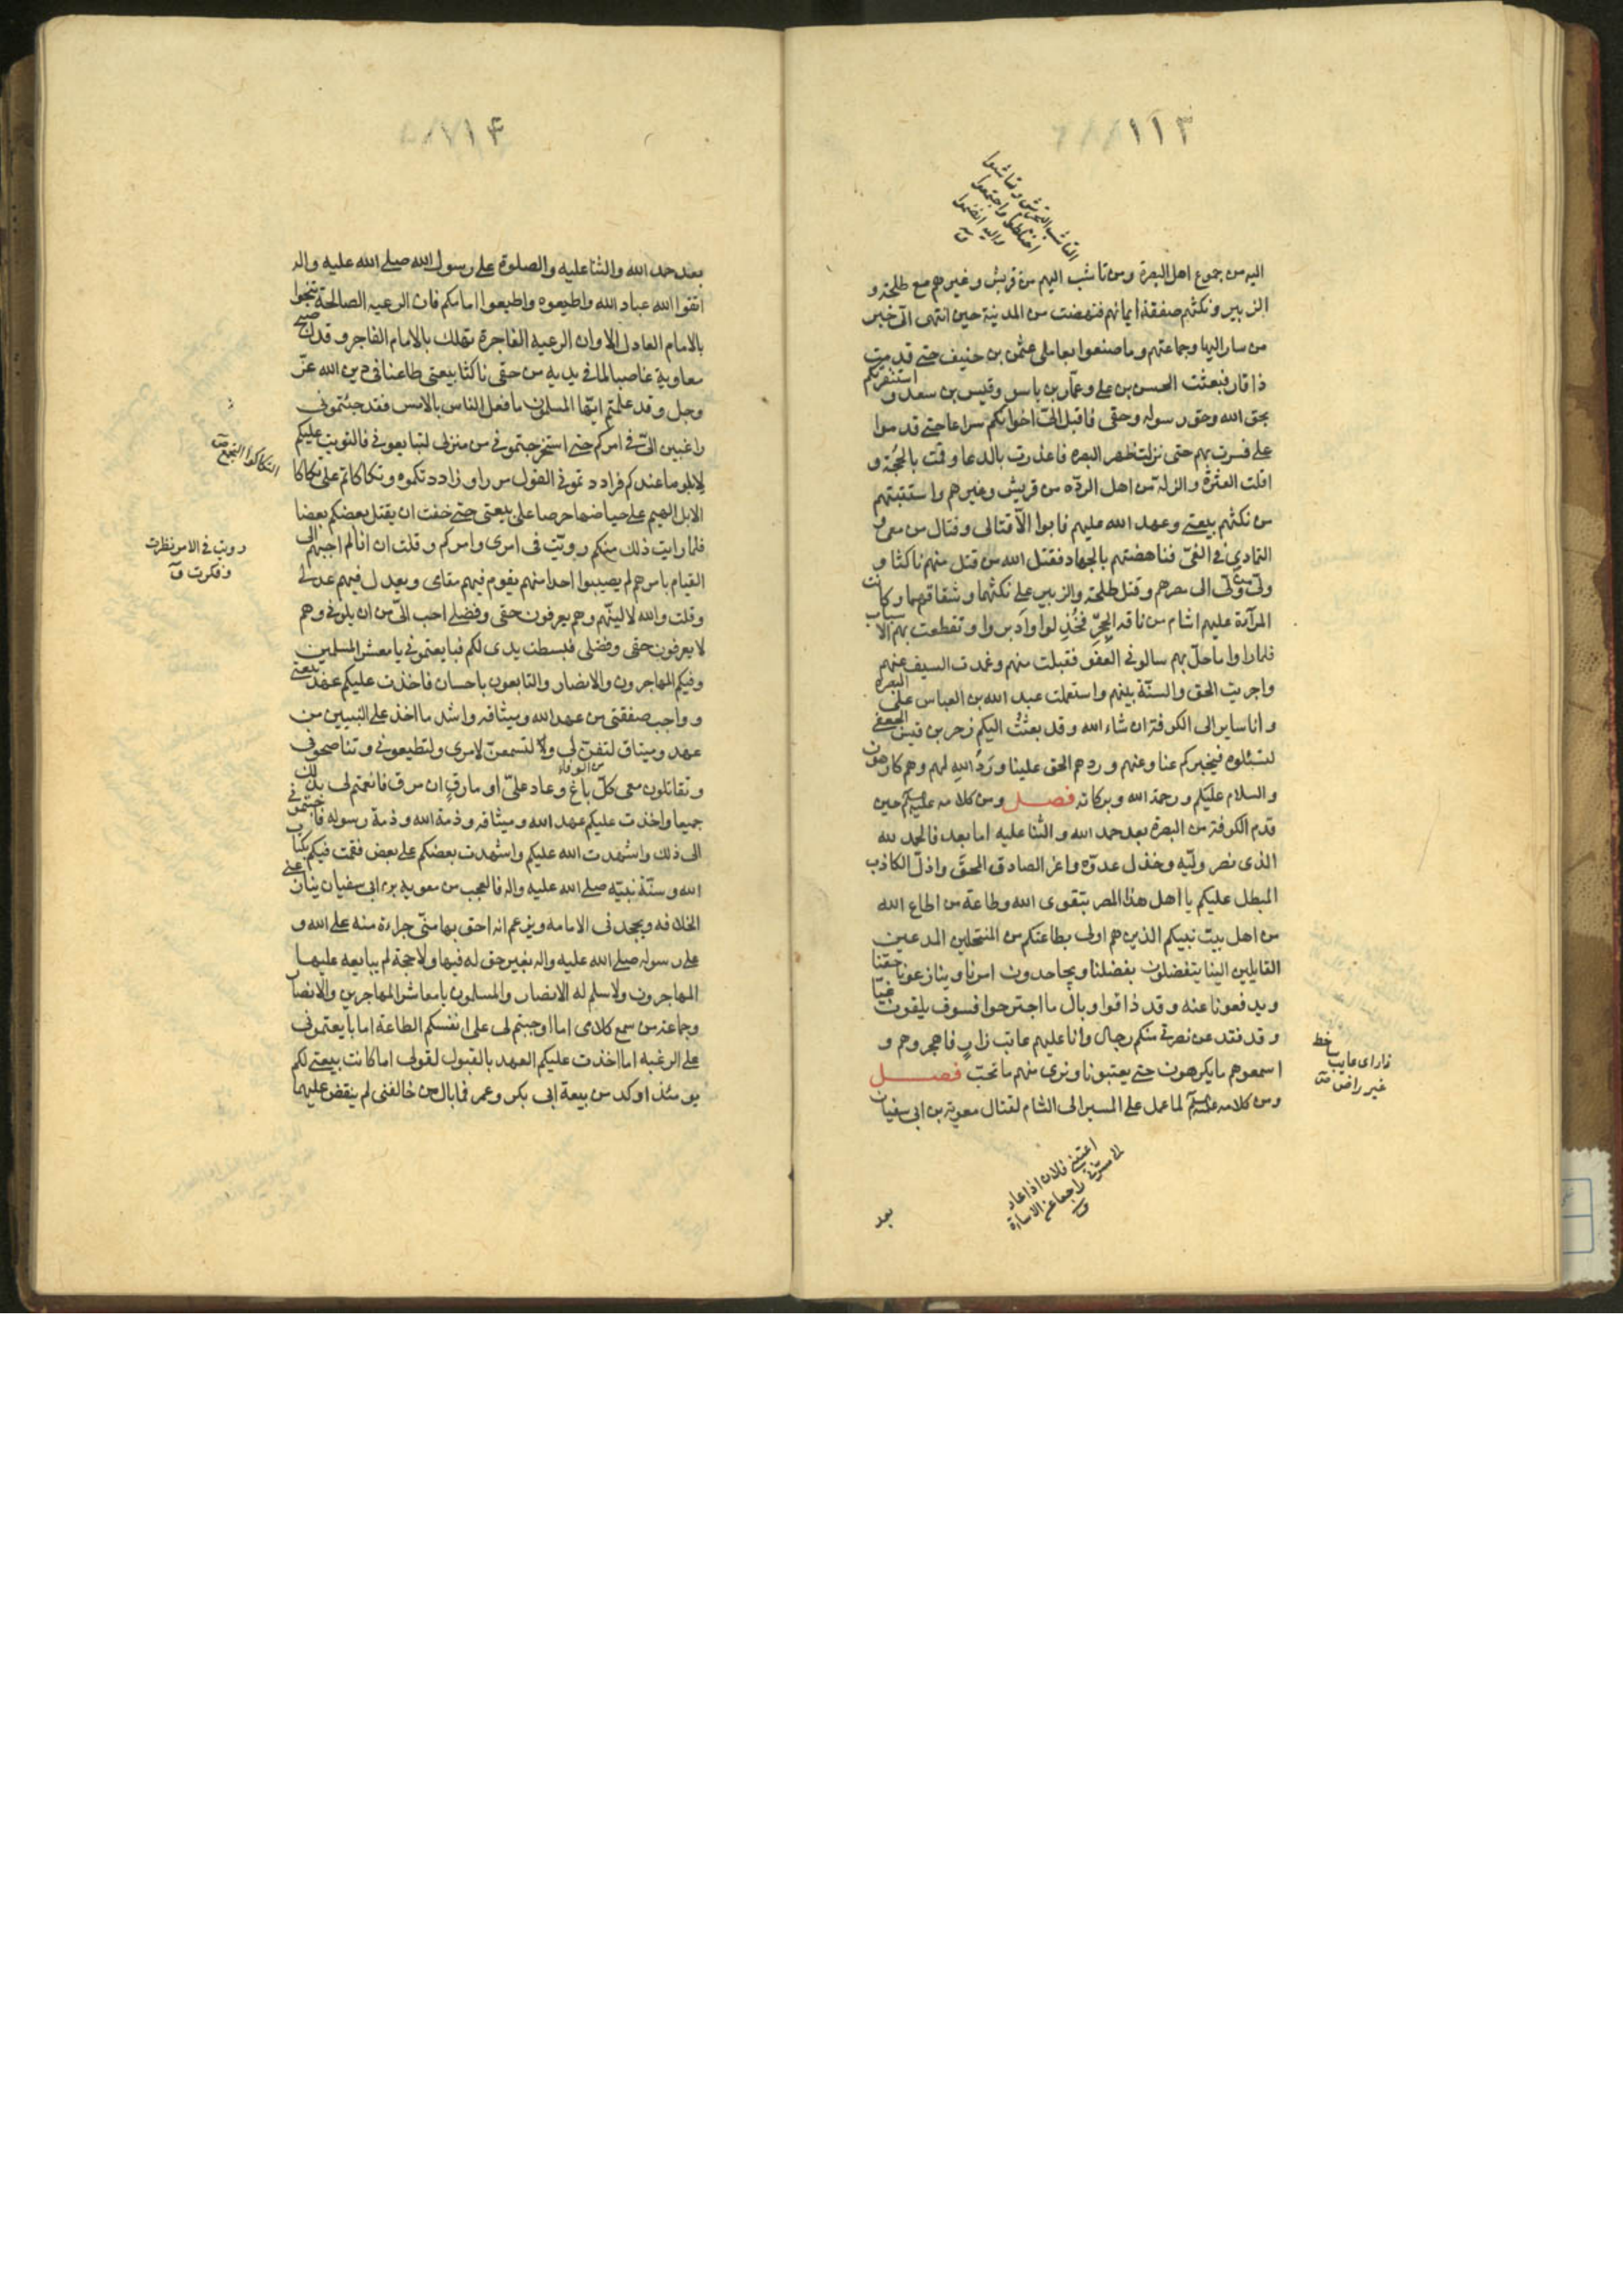 ١١٣
التاشب التجمش وتاشبوا
اختلطوا واجتمعوا
واليه انضموا
ق
اليه من جموع اهل البصرة ومن تاشب اليهم من قريش وغيرهم مع طلحة و
الزبير ونكثهم صفقة ايمانهم فنهضت من المدينة حين انتهى الى خبر
من سار اليها وجماعتهم وما صنعوا بعاملى عثمن بن حنيف حتى قدمت
ذا قار فبعثت الحسن بن على وعمار بن ياسر وقيس بن سعد و استنفرتكم
بحق الله وحق رسوله وحقى فاقبل الىّ اخوانكم سراعا حتى قدموا
على فسرت بهم حتى نزلت ظهر البصره فاعذرت بالدعا وقمت بالحُجّة و
اقلت العثرة والزلة من اهل الردّه من قريش وغيرهم واستتبتهم
من نكثهم بيعتى وعهد الله عليهم فابوا الّا قتالى وقتال من معى و
التمادي في الغىّ فناهضتهم بالجهاد فقتل الله من قتل منهم ناكثا و
ولّى من ولّى الى مصرهم وقتل طلحة والزبير على نكثهما وشقاقهما وكانت
المرآءة عليهم اشام من ناقة الحِجرِ فخُذِلوا واَدبروا وتقطعت بهم الاسباب
فلما راوا ما حلّ بهم سالونى العفو فقبلت منهم وغمدت السيف عنهم
واجريت الحق والسنّة بينهم واستعملت عبد الله بن العباس على البصره
وانا ساير الى الكوفة ان شاء الله وقد بعثتُ اليكم زحر بن قيس الجعفى
لتسئلوه فيخبركم عنا وعنهم وردهم الحق علينا ورَدُّ اللهِ لهم وهم كارهون
والسلام عليكم ورحمة الله وبركاته فصل ومن كلامه عليه السلم حين
قدم الكوفة من البصرة بعد حمد الله والثنا عليه اما بعد فالحمد لله
الذى نصر وليّه وخذل عدوّه واعز الصادق المحقّ واذلّ الكاذب
المبطل عليكم يا اهل هذا المصر بتقوى الله وطاعة من اطاع الله
من اهل بيت نبيكم الذين هم اولى بطاعتكم من المنتحلين المدعين
القايلين الينا يتفضلون بفضلنا ويجاحدون امرنا وينازعونا حقّنا
ويدفعونا عنه وقد ذاقوا وبال ما اجترحوا فسوف يلقون غيّا
وقد قعد عن نصرتى منكم رجال وانا عليهم عاتب زارٍ فاهجروهم و
اسمعوهم ما يكرهون حتى يعتبونا ونرى منهم ما نحبّ فصل
ومن كلامه عليه السلم لما عمل على المسير الى الشام لقتال معوية بن ابى سفيان
زار اى عايب ساخط
غير راض ص
اعتبنى فلان اذا عاد
الى مسرّتى راجعا عن الاساءة
بعد
١١۴
بعد حمد الله والثنا عليه والصلوة على رسول الله صلى الله عليه واله
اتقوا الله عباد الله واطيعوه واطيعوا امامكم فان الرعيه الصالحة تنجوا
بالامام العادل الا وان الرعيه الفاجرة تهلك بالامام الفاجر وقد اصبح
معاوية غاصبا لما في يديه من حقى ناكثا بيعتى طاعنا فى دين الله عزّ
وجل وقد علمتم ايّها المسلمون ما فعل الناس بالامس فقد جئتمونى
راغبين الىّ فى امركم حتى استخرجتمونى من منزلى لتبايعونى فالتويت عليكم
لابلو ما عندكم فراددتمونى القول مرارا وراددتكموه وتكاكاتم على تكاكا
الابل الهيم على حياضها حرصا على بيعتى حتى خفت ان يقتل بعضكم بعضا
فلما رايت ذلك منكم رويّت فى امرى وامركم وقلت ان انا لم اجبهم الى
القيام بامرهم لم يصيبوا احدا منهم يقوم فيهم مقامى ويعدل فيهم عدلى
وقلت والله لالينّهم وهم يعرفون حقى وفضلى احب الىّ من ان يلونى وهم
لا يعرفون حقى وفضلى فبسطت يدى لكم فبايعتمونى يا معشر المسلمين
وفيكم المهاجرون والانصار والتابعون باحسان فاخذت عليكم عهد بيعتى
وواجب صفقتى من عهد الله وميثاقه واشد ما اخذ على النبيين من
عهد وميثاق لتفنّ لى ولتسمعنّ لامرى ولتطيعونى وتناصحونى
من الوفاء
وتقاتلون معى كلّ باغ وعاد علىّ او مارقٍ ان مرق فانعمتم لى بذلك
جميعا واخذت عليكم عهد الله وميثاقه وذمة الله وذمة رسوله فاجبتمونى
الى ذلك واشهدت الله عليكم واشهدت بعضكم على بعض فقمت فيكم بكتاب
الله وسنّة نبيّه صلى الله عليه واله فالعجب من معوية بن ابى سفيان ينازعنى
الخلافه ويجحدنى الامامه ويزعم انه احق بها منّى جراءة منه على الله و
على رسوله صلى الله عليه واله بغير حق له فيها ولا حجة لم يبايعه عليها
المهاجرون ولا سلم له الانصار والمسلمون يا معاشر المهاجرين والانصار
وجماعة من سمع كلامى اما اوجبتم لى على انفسكم الطاعة اما بايعتمونى
على الرغبه اما اخذت عليكم العهد بالقبول لقولى اما كانت بيعتى لكم
يومئذ اوكد من بيعة ابى بكر وعمر فما بال من خالفنى لم ينقض عليهما
التكاكوا التجمع ص
رويت فى الامر نظرت
وفكرت ق